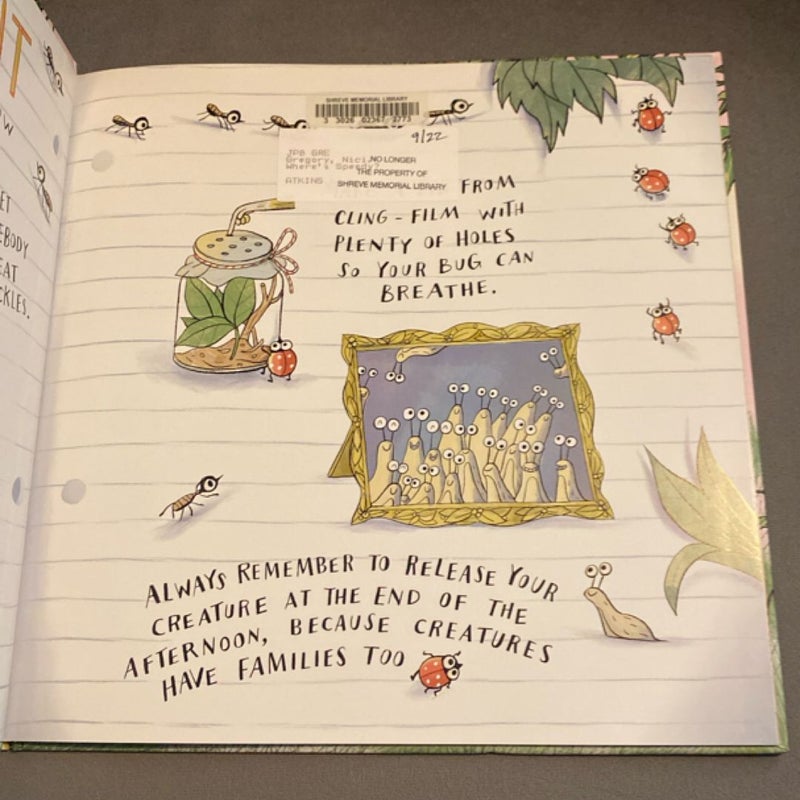 IT
OW
ET
EBODY
EAT
CKLES.
SHREVE MEMORIAL LIBRARY
3 3026 02367 9773
9/22
JPB GRE
Gregory, Nici
Where's Speedy?
ATKINS
NO LONGER
THE PROPERTY OF
SHREVE MEMORIAL LIBRARY
FROM
CLING-FILM WITH
PLENTY OF HOLES
SO YOUR BUG CAN
BREATHE.
ALWAYS REMEMBER TO RELEASE YOUR
CREATURE AT THE END OF THE
AFTERNOON, BECAUSE CREATURES
HAVE FAMILIES TOO